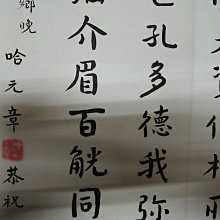 孔多德我弥
介眉百觥同
鄉晚哈元章恭祝